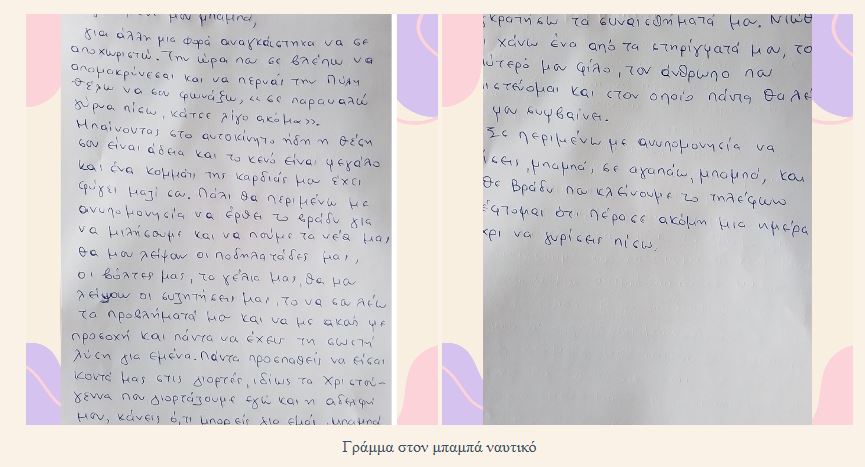 μου μπαμπά,
για άλλη μια φορά αναγκάστηκα να σε
αποχωριστώ. Την ώρα που σε βλέπω να
απομακρύνεσαι και να περνάς την Πύλη
θέλω να σου φωνάξω, «σε παρακαλώ
γύρνα πίσω, κάτσε λίγο ακόμα».
Μπαίνοντας στο αυτοκίνητο ήδη η θέση
σου είναι άδεια και το κενό είναι μεγάλο
και ένα κομμάτι της καρδιάς μου έχει
φύγει μαζί σου. Πάλι θα περιμένω με
ανυπομονησία να έρθει το βράδυ για
να μιλήσουμε και να πούμε τα νέα μας,
θα μου λείψουν οι ποδηλατάδες μας,
οι βόλτες μας, το γέλιο μας, θα μου
λείψουν οι συζητήσεις μας, το να σου λέω
τα προβλήματά μου και να με ακούς με
προσοχή και πάντα να έχεις τη σωστή
λύση για εμένα. Πάντα προσπαθείς να είσαι
κοντά μας στις γιορτές, ιδίως τα Χριστού-
γεννα που γιορτάζουμε εγώ και η αδελφή
μου, κάνεις ό,τι μπορείς για εμάς, μπαμπά
κρατήσω τα συναισθήματά μου. Νιώθ
χάνω ένα από τα στηρίγματά μου, το
ύτερό μου φίλο, τον άνθρωπο που
ιστεύομαι και στον οποίο πάντα θα λέ
μου συμβαίνει.
Σε περιμένω με ανυπομονησία να
ίσεις, μπαμπά, σε αγαπάω, μπαμπά, και
θε βράδυ που κλείνουμε το τηλέφωνο
έφτομαι ότι πέρασε ακόμη μια ημέρα
χρι να γυρίσεις πίσω.
Γράμμα στον μπαμπά ναυτικό